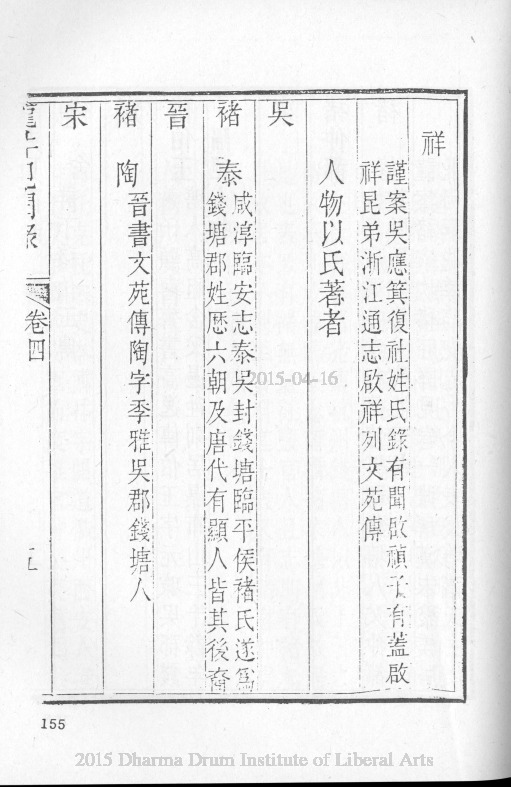 祥
謹案吳應箕復社姓氏錄有聞啟禎子有蓋啟
祥昆弟浙江通志啟祥列文苑傳
人物以氏著者
吳
褚泰
咸淳臨安志泰吳封錢塘臨平侯褚氏遂爲
錢塘郡姓歷六朝及唐代有顯人皆其後裔
晉
褚陶
晉書文苑傳陶字季雅吳郡錢塘人
宋
卷四
五
155
2015-04-16
2015 Dharma Drum Institute of Liberal Arts